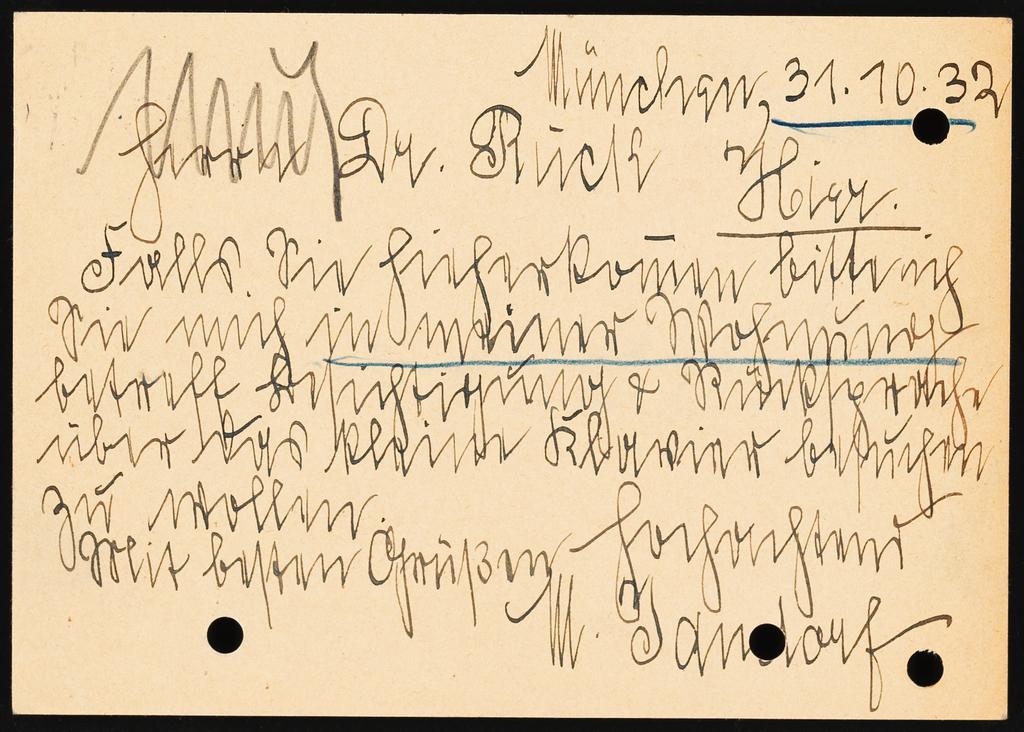 München, 31.10.32
Herrn Dr. Rück Hier.
Falls Sie hieherkom̄en bitte ich
Sie mich in meiner Wohnung
betreff Besichtigung & Rücksprache
über das kleine Klavier besuchen
zu wollen.
Mit besten Grüßen hochachtend
M. Jandorf